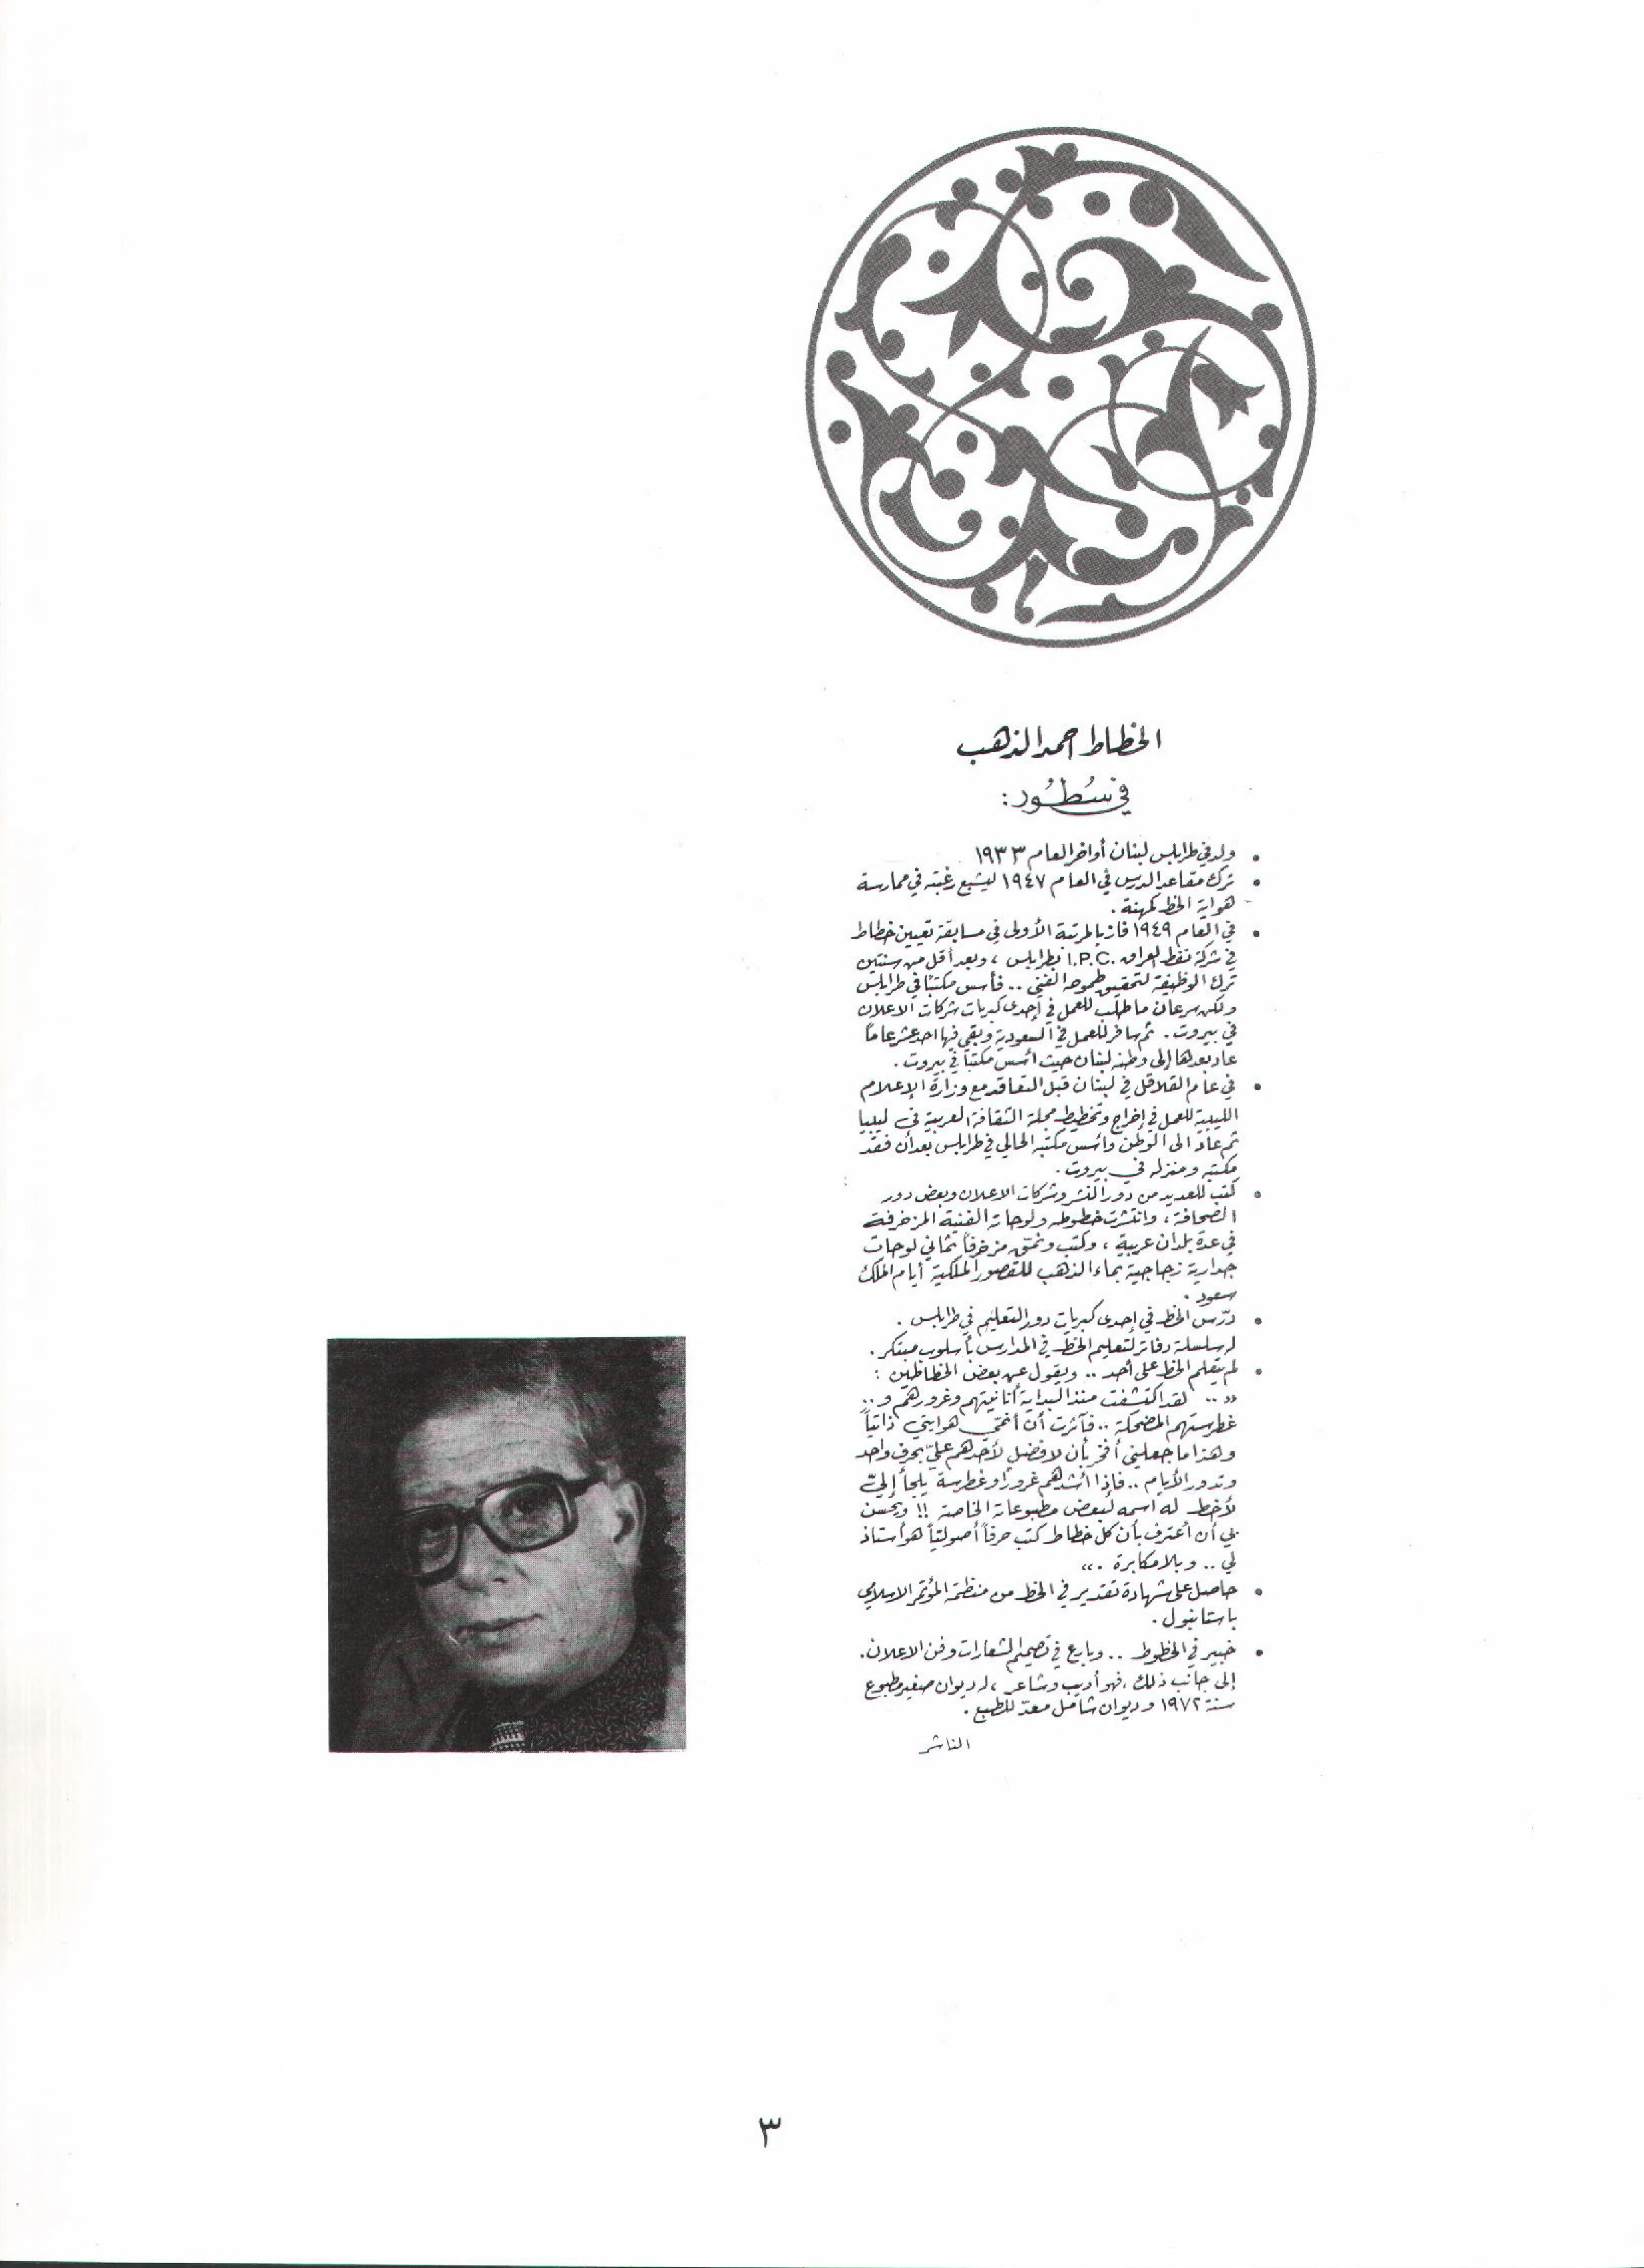 الخطاط احمد الذهب
في سُطُور:
• ولد في طرابلس لبنان أواخر العام ١٩٣٣
• ترك مقاعد الدرس في العام ١٩٤٧ ليشبع رغبته في ممارسة
هواية الخط كمهنة .
• في العام ١٩٤٩ فاز بالمرتبة الأولى في مسابقة تعيين خطاط
في شركة نفط العراق .I.P.C بطرابلس ، وبعد أقل من سنتين
ترك الوظيفة لتحقيق طموحه الفني .. فأسس مكتبًا في طرابلس
ولكن سرعان ما طلب للعمل في إحدى كبريات شركات الاعلان
في بيروت . ثم سافر للعمل في السعودية وبقي فيها احد عشر عامًا
عاد بعدها إلى وطنه لبنان حيث أسس مكتبًا في بيروت .
• في عام القلاقل في لبنان قبل التعاقد مع وزارة الإعلام
الليبية للعمل في إخراج وتخطيط مجلة الثقافة العربية في ليبيا
ثم عاد الى الوطن وأسس مكتبه الحالي في طرابلس بعد أن فقد
مكتبه ومنزله في بيروت .
• كتب للعديد من دور النشر وشركات الاعلان وبعض دور
الصحافة ، وانتشرت خطوطه ولوحاته الفنية المزخرفة
في عدة بلدان عربية ، وكتب ونمّق مزخرفاً ثماني لوحات
جدارية زجاجية بماء الذهب للقصور الملكية أيام الملك
سعود .
• درّس الخط في إحدى كبريات دور التعليم في طرابلس .
له سلسلة دفاتر لتعليم الخطّ في المدارس بأسلوب مبتكر .
• لم يتعلم الخط على أحد .. ويقول عن بعض الخطاطين :
« .. لقد اكتشفت منذ البداية أنانيتهم وغرورهم و ..
غطرستهم المضحكة .. فآثرت أن أنمّي هوايتي ذاتياً
وهذا ما جعلني أفخر بأن لا فضل لأحدهم عليّ بحرف واحد
وتدور الأيام .. فإذا أشدهم غرورًا وغطرسة يلجأ إليّ
لأخط له اسمه لبعض مطبوعاته الخاصة !! ويحسن
بي أن أعترف بأن كل خطاط كتب حرفاً أصولياً هو أستاذ
لي .. وبلا مكابرة . »
• حاصل على شهادة تقدير في الخط من منظمة المؤتمر الاسلامي
باستانبول .
• خبير في الخطوط .. وبارع في تصميم الشعارات وفن الاعلان .
إلى جانب ذلك ، فهو أديب وشاعر ، له ديوان صغير مطبوع
سنة ١٩٧٢ وديوان شامل معدّ للطبع .
الناشر
٣